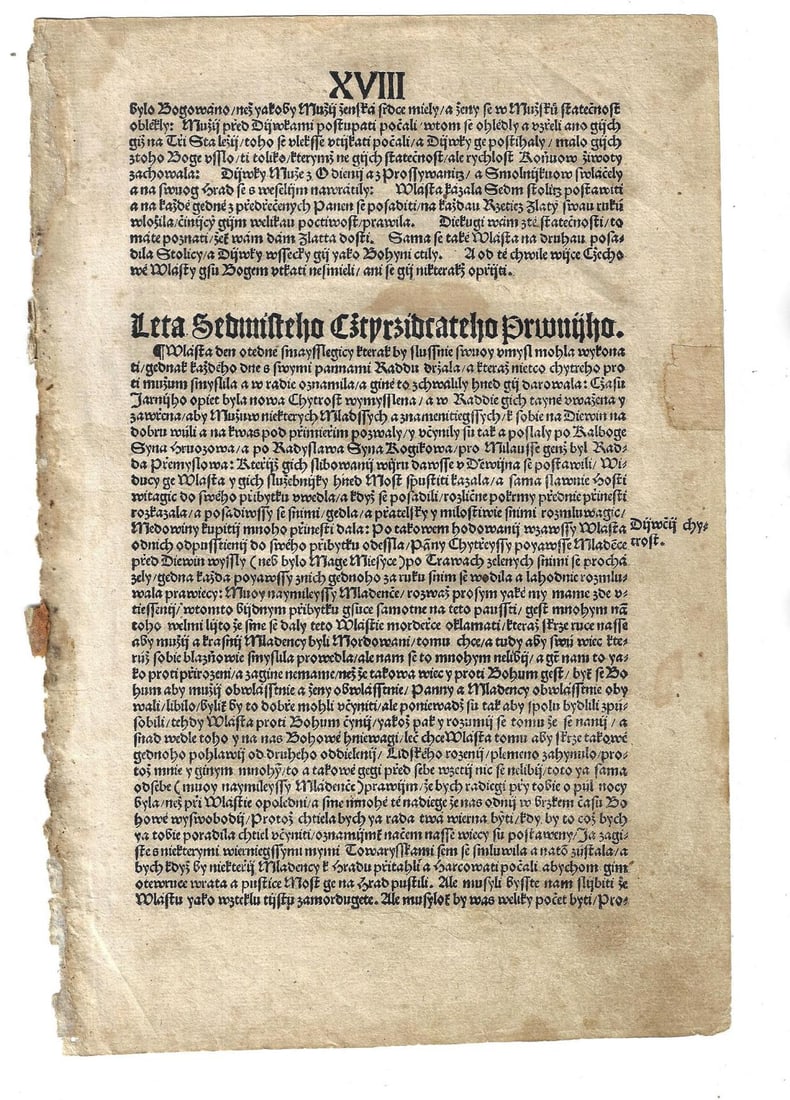 XVIII
bylo Bogowano/než yakoby Mužij ženská srdce miely/a ženy se w Mužskú statečnost
oblékly: Mužij před Dijwkami postupati počali/wtom se ohlédly a vzřeli ano gijch
giž na Tři Sta ležij/toho se vlekšse vtijkati počali/a Dijwky ge postihaly/malo gijch
ztoho Boge vsslo/ti toliko/kterymž ne gijch statečnost/ale rychlost Koňuow žiwoty
zachowala: Dijwky Muže z Odienij a z Prossywanitz/a Smolnijkuow swláčely
a na swuog Hrad se s weselijm nawrátily: Wlasta kázala Sedm stolitz postawiti
a na každé gedné z předřečených Panen se posaditi/na každau Rzetiez Zlatý swau rukú
wložila/činijcý gijm welikau poctiwost/prawila. Diekugi wám z té statečnosti/to
máte poznati/žeť wám dám Zlatta dosti. Sama se také Wlasta na druhau posa-
dila Stolicy/a Dijwky wssecky gij yako Bohyni ctily. A od té chwile wijce Czecho
wé Wlasty gsu Bogem vtkati nesmieli/ani se gij nikterakž opřijti.
Leta Sedmisteho Cžtyrzidcateho Prwnijho.
¶Wlasta den ote dne smaysslegicy kterak by slussnie swuoy vmysl mohla wykona
ti/gednak každého dne s swými pannami Raddu držala/a kteráž nietco chytreho pro
ti mužum smyslila a w radie oznámila/a giné to zchwálily hned gij darowala: Cžasu
Jarnijho opiet byla nowá Chytrost wymysslena/a w Raddie gich taynie vwážena y
zawřena/aby Mužuw niekterych Mladssych a znamenitiegssych/k sobie na Diewin na
dobrú wuoli a na kwas pod přimieřim pozwaly/y včynily sú tak a poslaly po Kalboge
Syna Hruozowa/a po Radyslawa Syna Kogikowa/pro Milausse genž byl Rad-
da Přemyslowa: Kteřijž gich slibowanij wijru dawsse v Dewijna se postawili/Wi-
ducy ge Wlasta y gich služebnijky hned Most spustiti kázala/a sama slawnie Hosti
witagic do swého přibytku vwedla/a když se posadili/rozličné pokrmy přednie přinesti
rozkázala/a posadiwssy se s nimi/gedla/a přátelsky y milostiwie s nimi rozmluwagic/
Medowiny kupitij mnoho přinesti dala: Po takowém hodowanij wzawssy Wlasta
od nich odpusstienij do swého přibytku odessla/Panny Chytřeyssy poyawsse Mladence
před Diewin wyssly (neb bylo Mage Miesyce) po Trawach zelenych s nimi se procha
zely/gedna každá poyawssy z nich gednoho za ruku s nim se wodila a lahodnie rozmlu-
wala prawiecy: Muoy naymileyssy Mladenče/rozwaž prosym yaké my máme zde v-
tiessenij/w tomto bijdném přibytku gsúce samotné na této paussti/gest mnohym nam
toho welmi lijto že sme se daly této Wlastie morderce oklamati/kteráž skrze ruce nasse
aby mužij a krásnij Mladency byli Mordowani/tomu chce/a tudy aby swú wiec kte-
rúž sobie blázniwie smyslila prowedla/ale nam se to mnohym nelibij/a gt nam to ya-
ko proti přirození/a zaginé nemáme/než že takowá wiec y proti Bohum gest/byť se Bo
hum aby mužij obwlásstnie a ženy obwlásstnie/Panny a Mládency obwlásstnie oby
wali/libilo/byliť by to dobře mohli včyniti/ale poniewadž sú tak aby spolu bydlili zpu-
sobili/tehdy Wlasta proti Bohum čynij/yakož pak y rozumij se tomu že se na nij/a
snad wedle toho y na nas Bohowé hniewagi/leč chce Wlasta tomu aby skrze takowé
gednoho pohlawij od druhého oddielenij/Lidského rozenij/plemeno zahynulo/pro-
tož mnie y ginym mnohym/to a takowé gegi před sebe wzetij nic se nelibij/toto ya sama
od sebe (muoy naymileyssy Mladenče) prawijm/že bych radiegi při tobie o pul nocy
byla/než při Wlastie o poledni/a sme mnohé té nadiege že nas od nij w brzkém času Bo
howé wyswobodij/Protož chtiela bych ya rada twá wierna býti/kdy by to což bych
ya tobie poradila chtiel včyniti/oznámijmt na čem nasse wiecy sú postaweny/Ja zagi-
sté s niekterymi wierniegssymi mymi Towarysskami sem se smluwila a na tom zustala/a
bych když by niekteřij Mladency k Hradu přitáhli a Harcowati počali abychom gim
otewruce wrata a pustice Most ge na Hrad pustili. Ale musyli bysste nam slijbiti že
Wlastu yako wzteklú tijstú zamordugete. Ale musylok by was weliky počet byti/Pro-
Dijwčij chy-
trost.